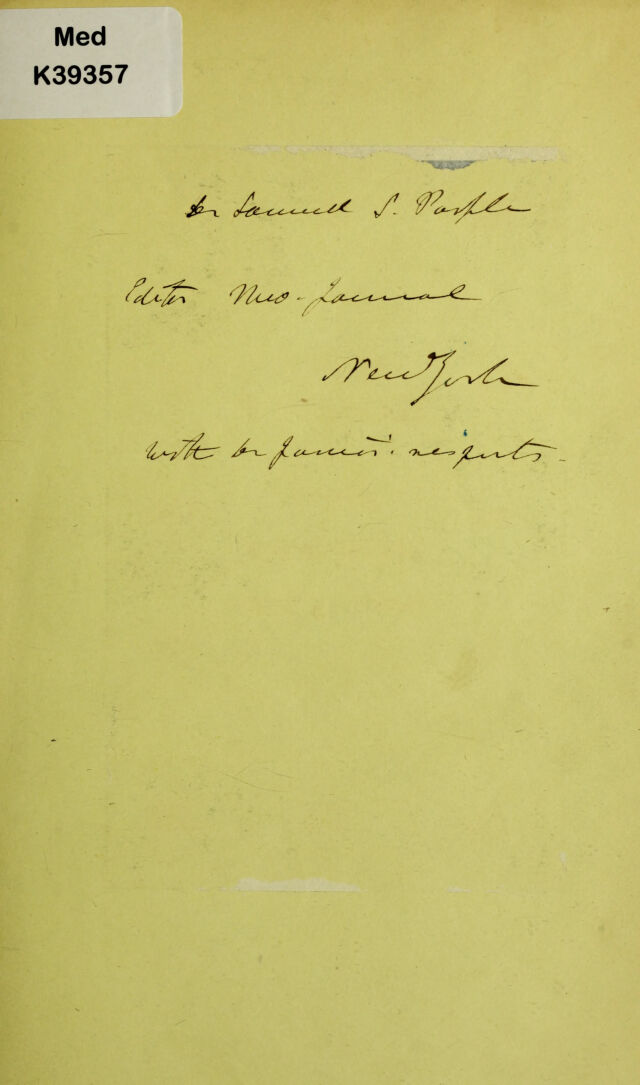 Med
K39357
Dr Samuel S. Purple
Editor Med. Journal
New York
with Dr James' respects.